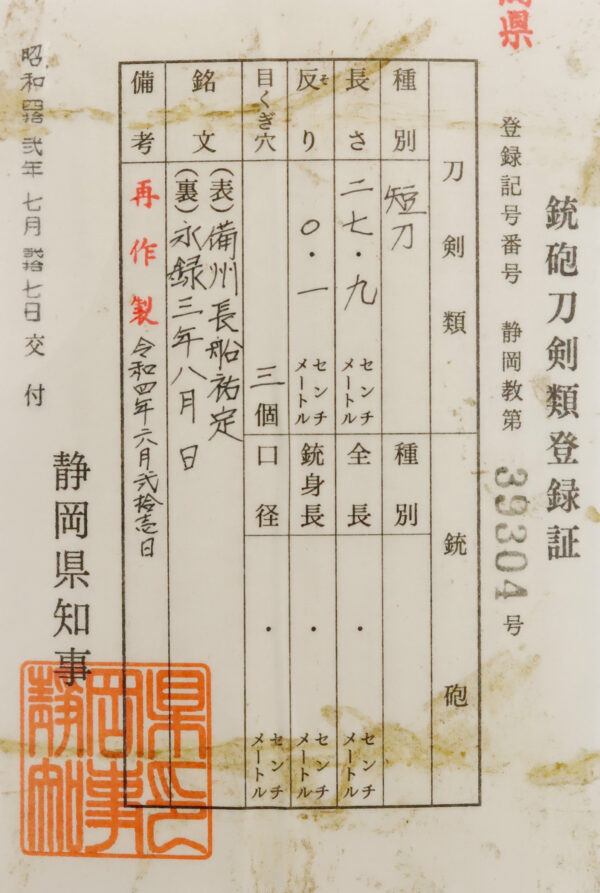 岡県
銃砲刀剣類登録証
登録記号番号 静岡教第 39304 号
刀剣類
銃砲
種別 短刀
種別
長さ 二七・九 センチメートル
全長 ・ センチメートル
反り そ 〇・一 センチメートル
銃身長 ・ センチメートル
目くぎ穴 三個
口径 ・ センチメートル
銘文 (表)備州長船祐定
(裏)永録三年八月 日
備考 再作製 令和四年六月弐拾壱日
昭和四拾弐年七月弐拾七日交付
静岡県知事
静岡県知事之印